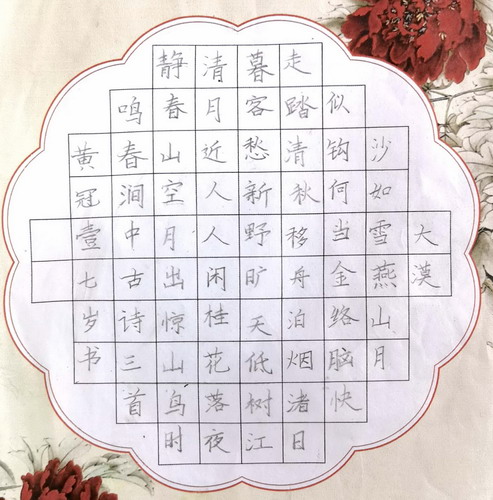 大漠
沙如雪燕山月
似钩何当金络脑快
走踏清秋移舟泊烟渚日
暮客愁新野旷天低树江
清月近人人闲桂花落夜
静春山空月出惊山鸟时
鸣春涧中古诗三首
黄冠壹七岁书